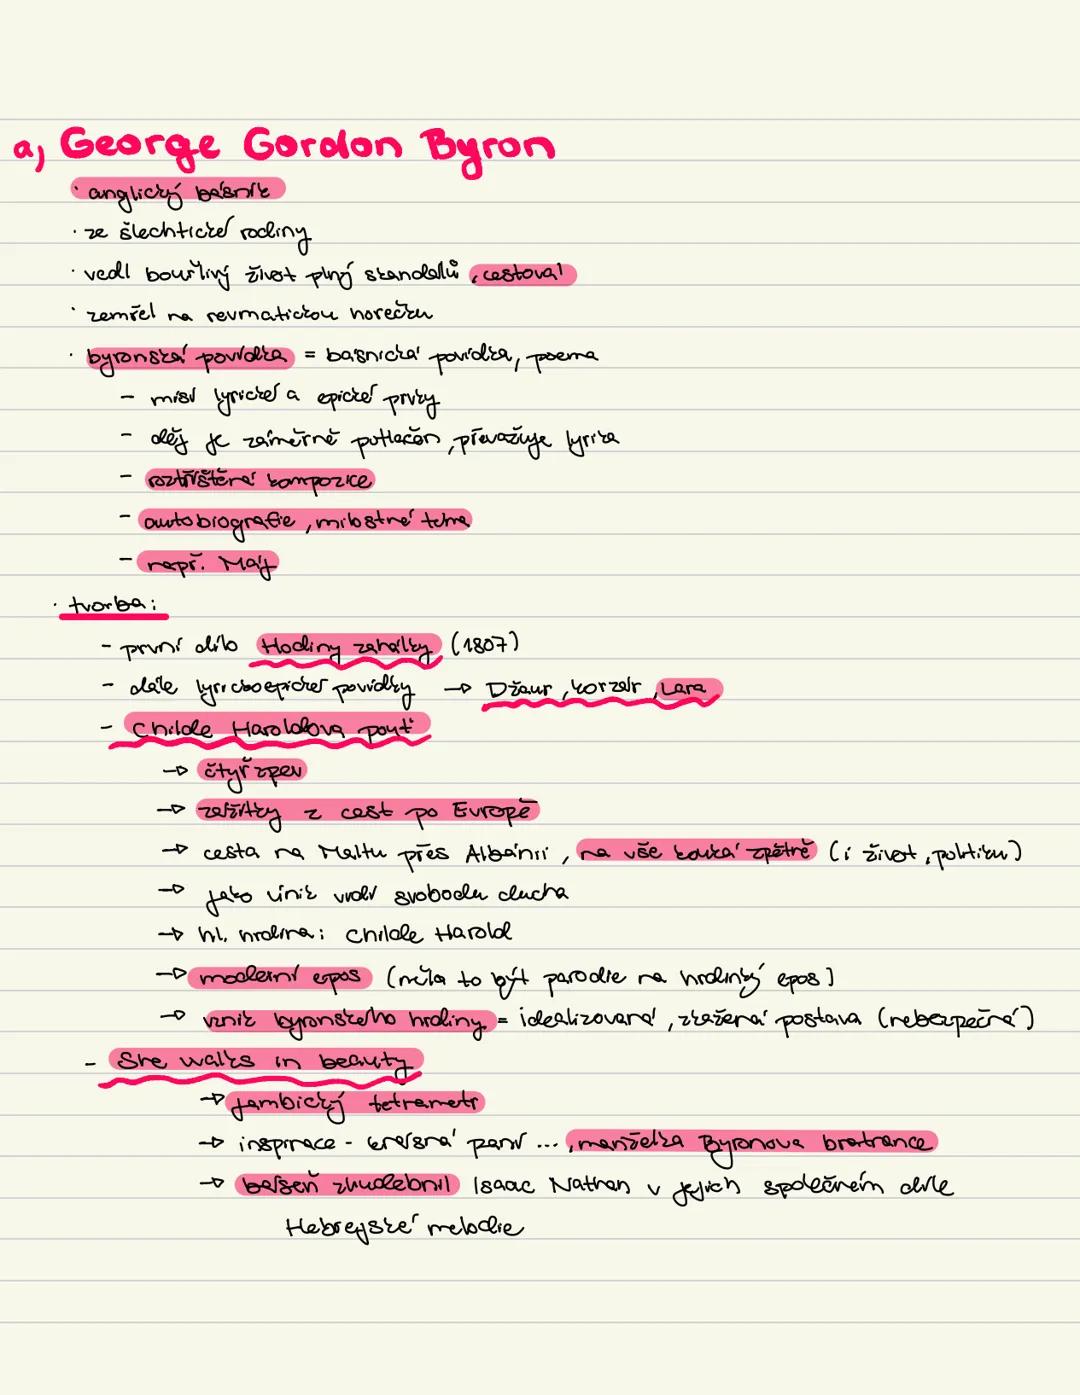 a, George Gordon Byron
· anglický básník
· ze šlechtické rodiny
· vedl bouřlivý život plný skandálů, cestoval
· zemřel na revmatickou horečku
· byronská povídka = básnická povídka, poema
- mísí lyrické a epické prvky
- děj je záměrně potlačen, převažuje lyrika
- roztříštěná kompozice
- autobiografie, milostné téma
- např. Máj
· tvorba:
- první dílo Hodiny zahálky (1807)
- dále lyrickoepické povídky → Džaur, korzár, Lara
- Childe Haroldova pouť
→ čtyřzpěv
→ zážitky z cest po Evropě
→ cesta na Maltu přes Albánii, na vše kouká zpětně (i život, politiku)
→ jako únik vidí svobodu ducha
→ hl. hrdina: Childe Harold
→ moderní epos (měla to být parodie na hrdinský epos)
→ vznik byronského hrdiny = idealizovaná, zkažená postava (nebezpečná)
- She walks in beauty
→ jambický tetrametr
→ inspirace - krásná paní ..., manželka Byronova bratrance
→ báseň zhudebnil Isaac Nathan v jejich společném díle
Hebrejské melodie